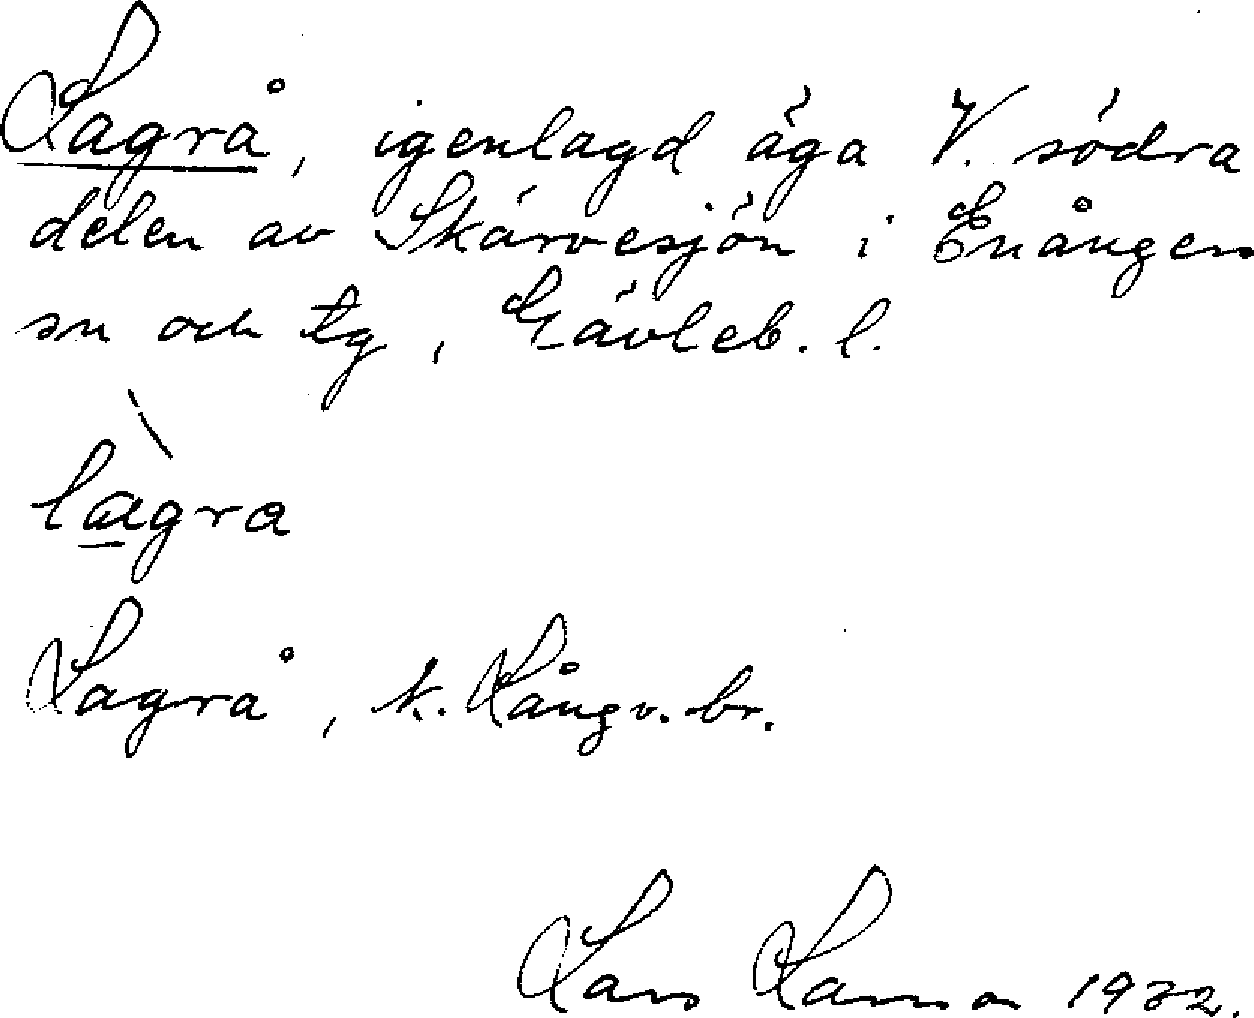 Lagrå, igenlagd äga V. södra
delen av Skärvesjön i Enångers
sn och tg, Gävleb. l.
lagra
Lagrå, k. Långv. br.
Lars Larsson 1932.